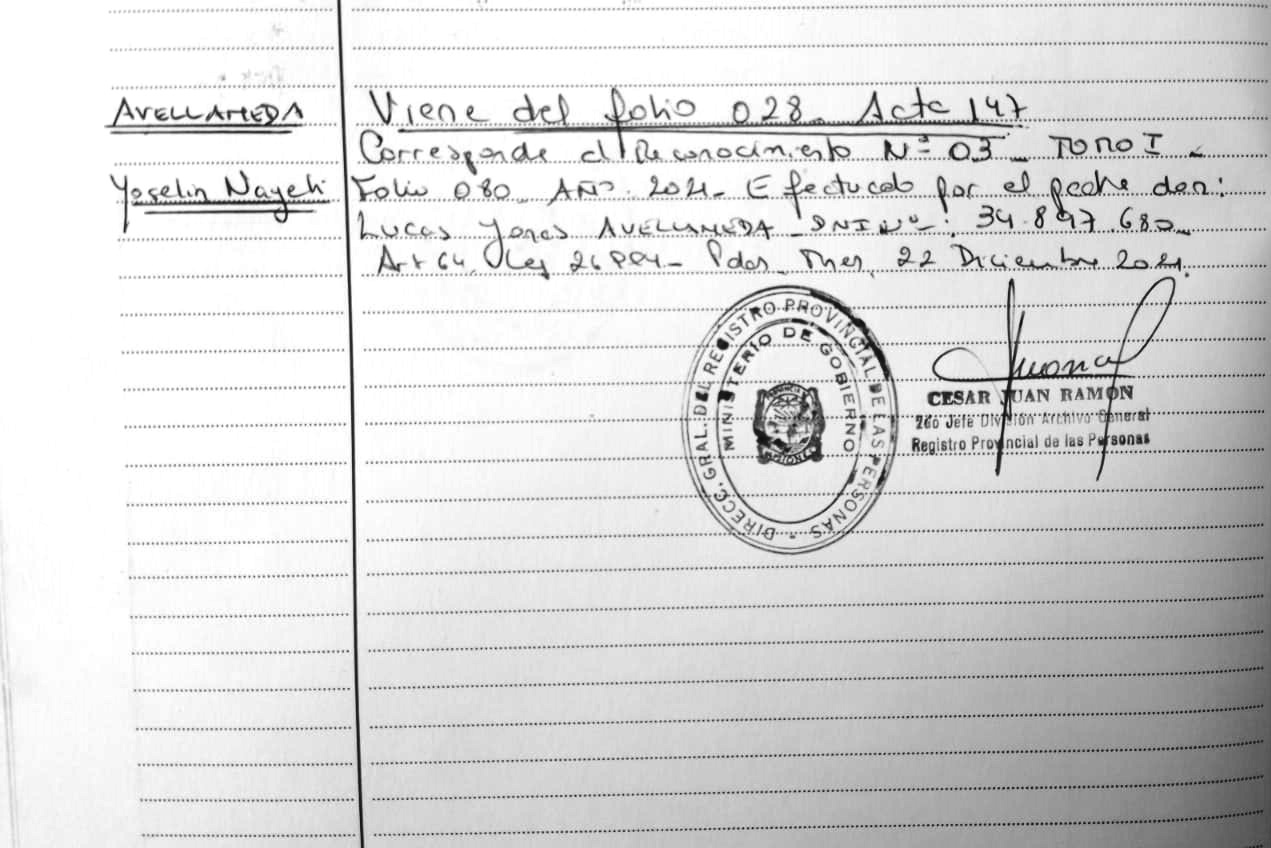 AVELLANEDA
Viene del folio 028. Acta 147
Corresponde al Reconocimiento Nº 03 - TOMO I -
Yoselin Nayeli
Folio 080 - AÑO. 2021 - Efectuado por el padre don:
Lucas Jonas AVELLANEDA - DNI Nº: 34.897.680
Art 64. Ley 26994 - Pdas, Mnes, 22 Diciembre 2021.
DIRECC. GRAL. DEL REGISTRO PROVINCIAL DE LAS PERSONAS -
MINISTERIO DE GOBIERNO
CESAR JUAN RAMON
2do Jefe División Archivo General
Registro Provincial de las Personas